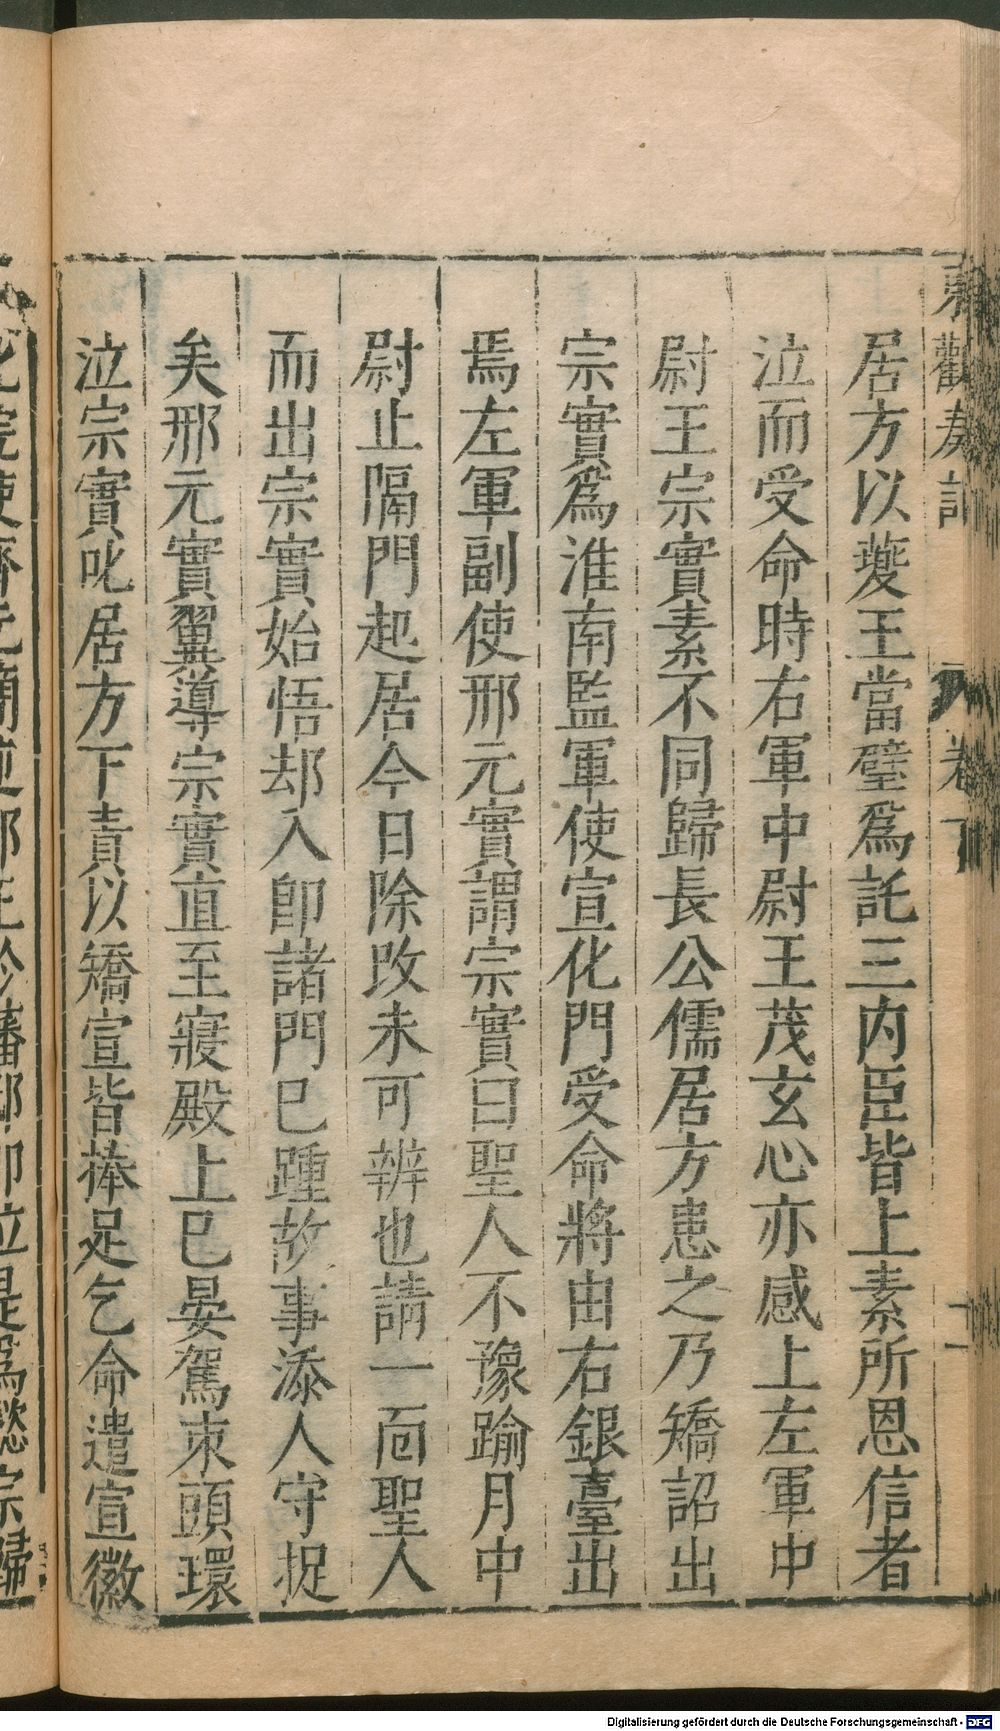 東觀奏記 卷下 二
居方以䕫王當璧爲託三内臣皆上素所恩信者
泣而受命時右軍中尉王茂玄心亦感上左軍中
尉王宗實素不同歸長公儒居方患之乃矯詔出
宗實爲淮南監軍使宣化門受命將由右銀臺出
焉左軍副使邢元實謂宗實曰聖人不豫踰月中
尉止隔門起居今日除攺未可辨也請一靣聖人
而出宗實始悟却入卽諸門巳踵故事添人守捉
矣邢元實翼導宗實直至寢殿上巳晏駕朿頭環
泣宗實叱居方下責以矯宣皆捧足乞命遣宣徽
於藩邸卽位是爲懿宗歸
Digitalisierung gefördert durch die Deutsche Forschungsgemeinschaft - DFG